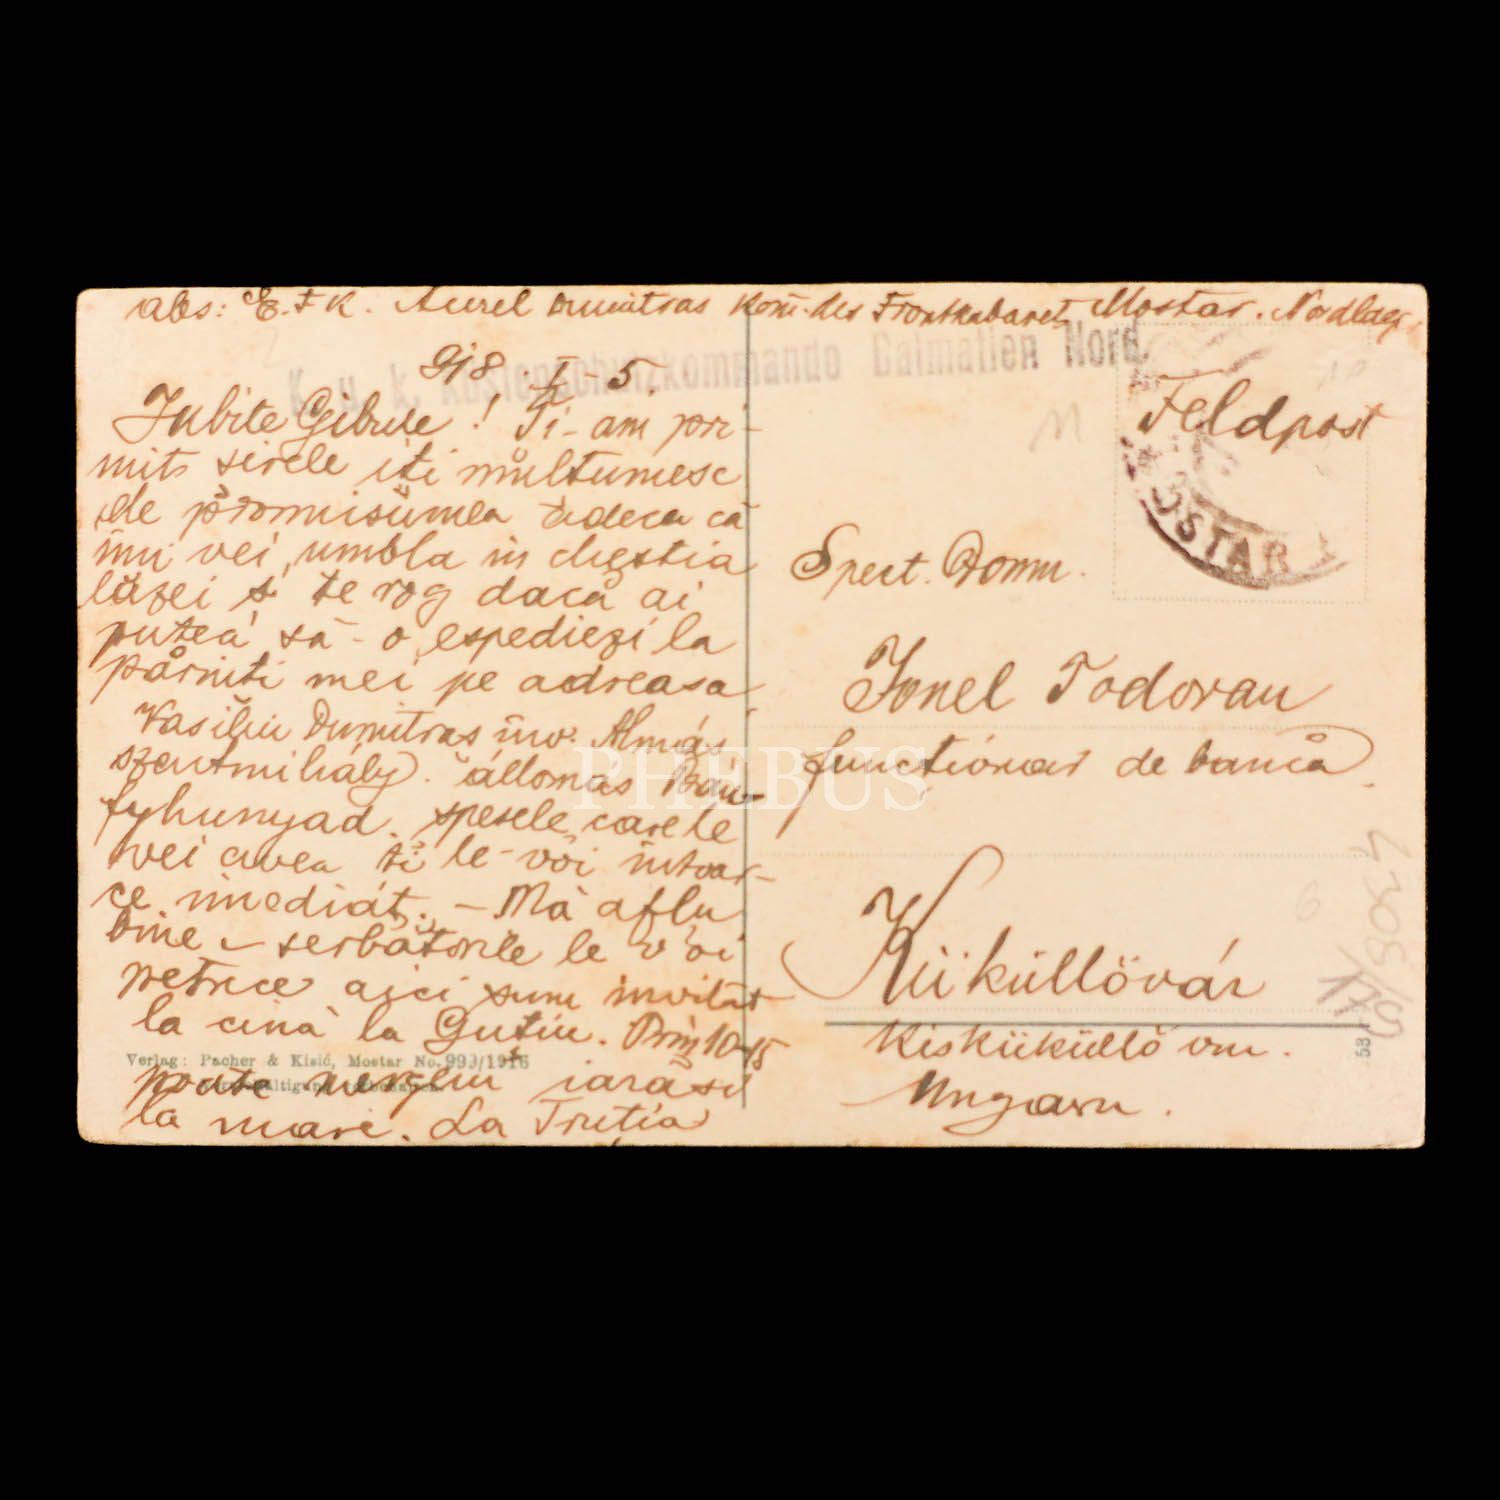 abs: E. F. K. Aurel Dumitras Kom. des Frontkabaret Mostar. Nordlager
K. u. k. Küstenschutzkommando Dalmatien Nord.
918. I - 5.
Iubite Gibule! Ti-am pri-
mit sirele iti multumesc
de promisiunea adeca că
imi vei umbla in chestia
lăzei si te rog dacă ai
puteá să-o espediezi la
părinti mei pe adreasa
Vasiliu Dumitras inv. Almás
szentmihály. állomás Bán-
fyhunyad. spesele care le
vei avea ti le-voi intoar-
ce imediát. - Mă aflu
bine serbătorile le voi
petrece aici sunt invitat
la cină la Gutiu. Prin 10-15
Verlag: Pacher & Kisić, Mostar No. 993/1916
poate mergem iarăsi
la mare. La
Feldpost
MOSTAR 1
Spect. Domn.
Ionel Todoran
functionar de bancă
Küküllövár
Kisküküllő vm.
Ungarn.
53
PHEBUS